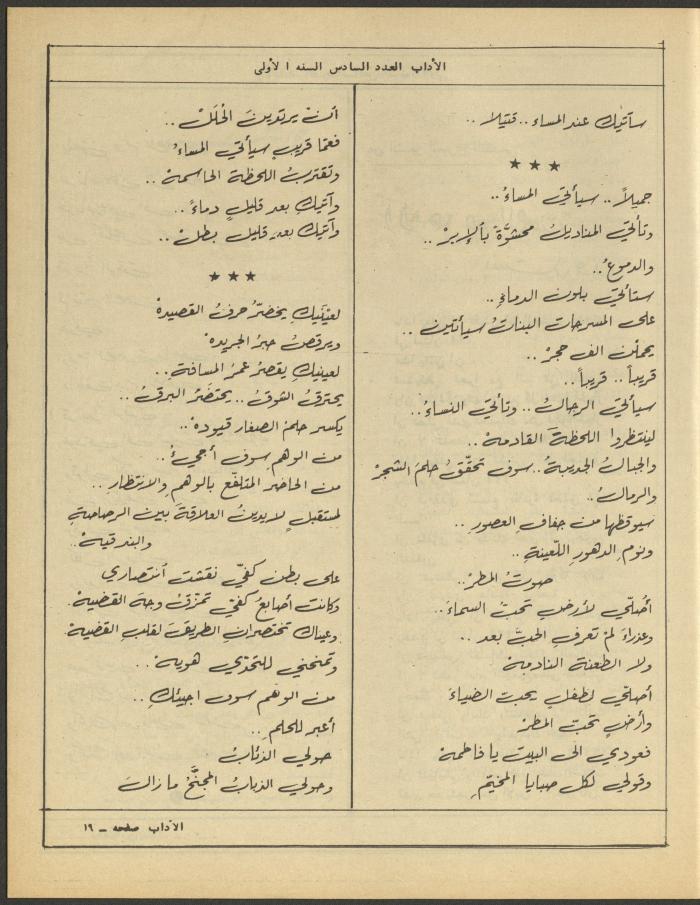 الآداب العدد السادس السنه ١ لأولى
سآتيك عند المساء .. قتيلا ..
★ ★ ★
جميلاً .. سيأتي المساءُ ..
وتأتي المناديلُ محشوَّة بالإبرْ ..
والدموعُ ..
ستأتي بلون الدماءِ ..
على المسرجات البناتُ سيأتين ..
يحملن الف حجرْ ..
قريباً .. قريباً ..
سيأتي الرجالُ .. وتأتي النساءُ ..
لينتظروا اللحظةَ القادمهْ ..
والجبالُ الجديبةُ .. سوف تحقّقُ حلمَ الشجرْ
والرمالُ ..
سيوقظها من جفافِ العصورِ ..
ونومِ الدهورِ اللّعينةِ ..
صوتُ المطرْ ..
أُصلّي لأرضٍ تحبّ السماءَ ..
وعذراءَ لمْ تعرفِ الحبَّ بعد ..
ولا الطعنة النادمهْ
أصلّي لطفلٍ يحبّ الضياءَ
وأرضٍ تحبّ المطرْ
فعودي الى البيت يا فاطمهْ
وقولي لكل صبايا المخيّمِ
أنْ يرتدينَ الحُلَلْ ..
فعمّا قريبٍ سيأتي المساءُ
وتقتربُ اللحظة الحاسمهْ ..
وآتيكِ بعد قليلٍ دماءً ..
وآتيك بعد قليل بطلْ ..
★ ★ ★
لعينيكِ يخضرّ حرفُ القصيدهْ
ويرقصُ حبرُ الجريدهْ
لعينيكِ يقصرُ عمرُ المسافةِ ..
يحترقُ الشوقُ .. يحتضَرُ البرقُ ..
يكسر حلمُ الصغار قيودهْ ..
من الوهم سوف أجيءُ ..
من الحاضر المتلفّع بالوهم والانتظارِ ..
لمستقبلٍ لا يدينُ العلاقةَ بين الرصاصةِ
والبندقيهْ ..
على بطن كفّي نقشت انتصاري
وكانت أصابعُ كفّي تمزّقُ وجهَ القضيهْ.
وعيناك تختصران الطريقَ لقلبِ القضيهْ
وتمنحني للتحدّي هويهْ ..
من الوهم سوف اجيئكِ ..
أعبر للحلمِ ..
حولي الذئابُ
وحولي الذبابُ المجنَّحُ ما زالَ
الآداب صفحه ــ ١٩